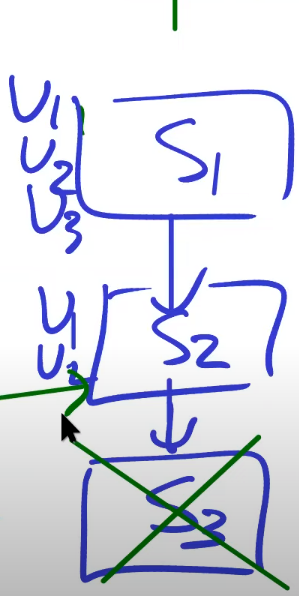 U1
U2
U3
S1
U1
U2
S2
S3